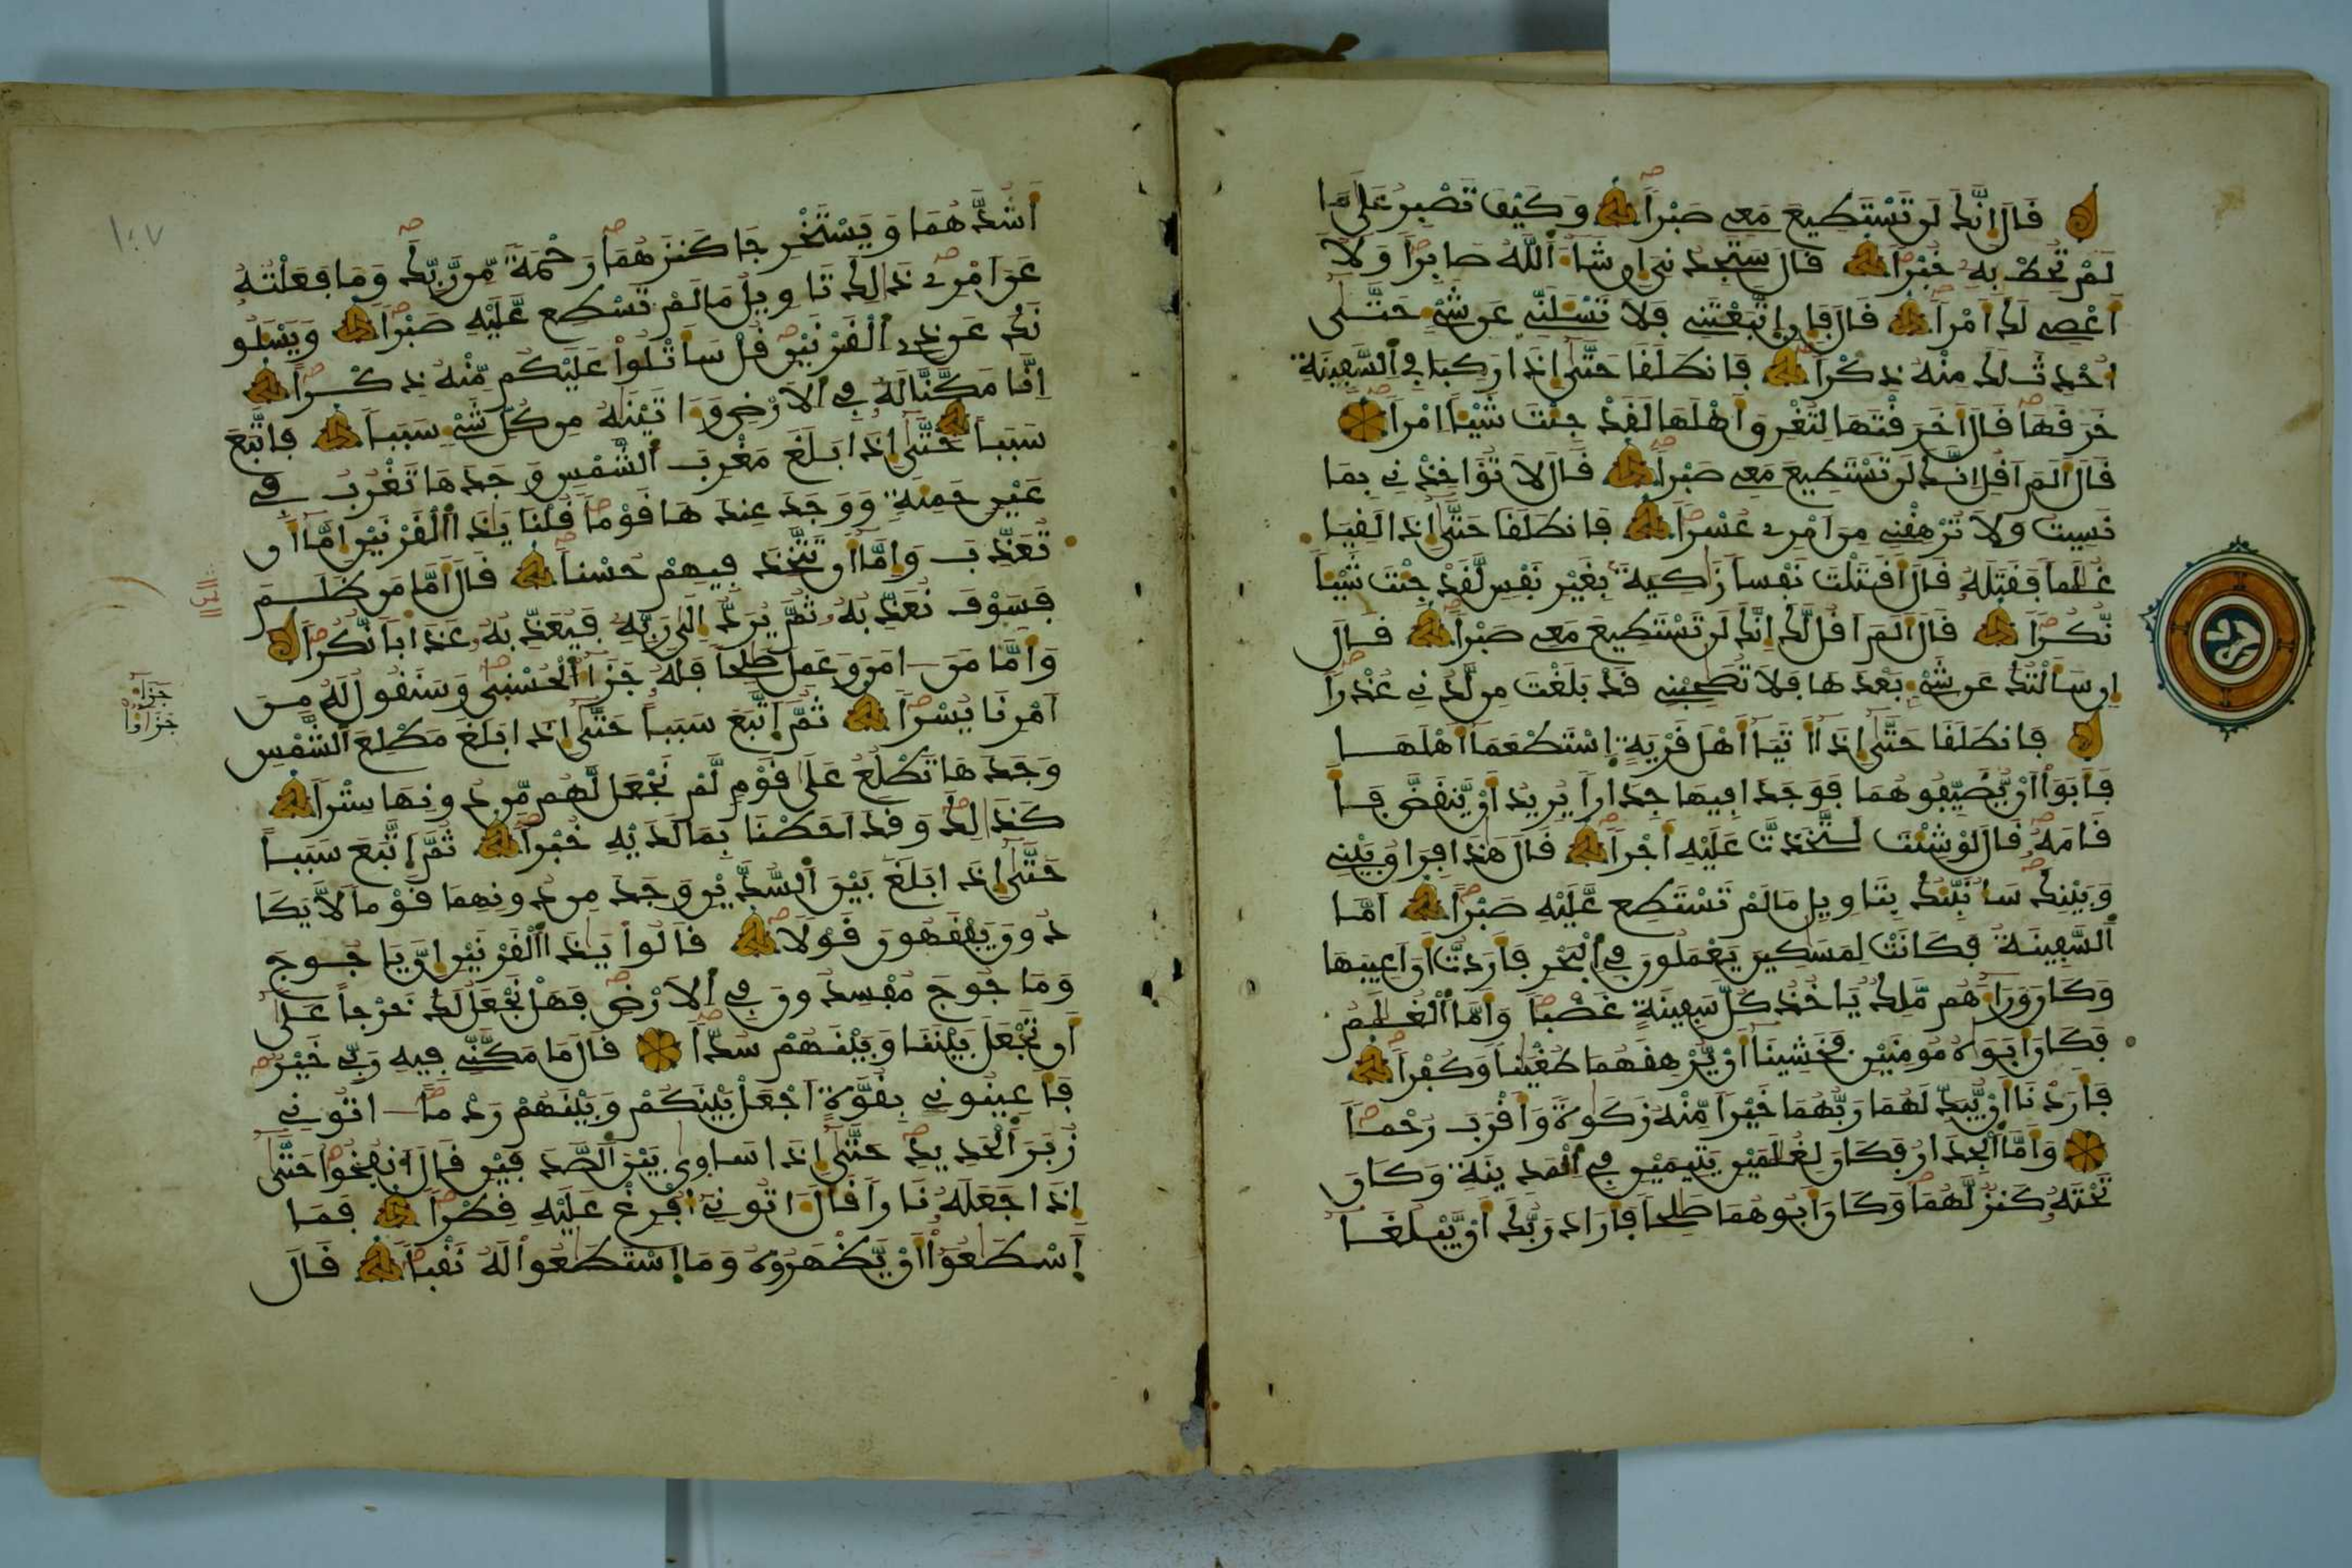 قَالَ إِنَّكَ لَن تَسْتَطِيعَ مَعِي صَبْراً وَكَيْفَ تَصْبِرُ عَلَىٰ مَا
لَمْ تُحِطْ بِهِ خُبْراً قَالَ سَتَجِدُنِيَ إِن شَاءَ اَللَّهُ صَابِراً وَلَا
أَعْصِي لَكَ أَمْراً قَالَ فَإِنِ اِتَّبَعْتَنِي فَلَا تَسْـَٔلَنِّي عَن شَيْءٍ حَتَّىٰ
أُحْدِثَ لَكَ مِنْهُ ذِكْراً فَانطَلَقَا حَتَّىٰ إِذَا رَكِبَا فِي اِلسَّفِينَةِ
خَرَقَهَا قَالَ أَخَرَقْتَهَا لِتُغْرِقَ أَهْلَهَا لَقَدْ جِئْتَ شَيْـًٔا اِمْراً
قَالَ أَلَمَ اَقُلِ اِنَّكَ لَن تَسْتَطِيعَ مَعِي صَبْراً قَالَ لَا تُؤَاخِذْنِي بِمَا
نَسِيتُ وَلَا تُرْهِقْنِي مِنَ اَمْرِي عُسْراً فَانطَلَقَا حَتَّىٰ إِذَا لَقِيَا
غُلَٰماً فَقَتَلَهُ قَالَ أَقَتَلْتَ نَفْساً زَٰكِيَةً بِغَيْرِ نَفْسٍ لَّقَدْ جِئْتَ شَيْـًٔا
نُّكُراً قَالَ أَلَمَ اَقُل لَّكَ إِنَّكَ لَن تَسْتَطِيعَ مَعِي صَبْراً قَالَ
إِن سَأَلْتُكَ عَن شَيْءٍ بَعْدَهَا فَلَا تُصَٰحِبْنِي قَدْ بَلَغْتَ مِن لَّدُنِي عُذْراً
فَانطَلَقَا حَتَّىٰ إِذَا أَتَيَا أَهْلَ قَرْيَةٍ اِسْتَطْعَمَا أَهْلَهَا
فَأَبَوْا أَنْ يُّضَيِّفُوهُمَا فَوَجَدَا فِيهَا جِدَاراً يُرِيدُ أَنْ يَّنقَضَّ فَأَ
قَامَهُ قَالَ لَوْ شِئْتَ لَتَّخَذتَّ عَلَيْهِ أَجْراً قَالَ هَٰذَا فِرَاقُ بَيْنِي
وَبَيْنِكَ سَأُنَبِّئُكَ بِتَاوِيلِ مَا لَمْ تَسْتَطِع عَّلَيْهِ صَبْراً اَمَّا
اَلسَّفِينَةُ فَكَانَتْ لِمَسَٰكِينَ يَعْمَلُونَ فِي اِلْبَحْرِ فَأَرَدتُّ أَنَ اَعِيبَهَا
وَكَانَ وَرَاءَهُم مَّلِكٌ يَاخُذُ كُلَّ سَفِينَةٍ غَصْباً وَأَمَّا اَلْغُلَٰمُ
فَكَانَ أَبَوَٰهُ مُومِنَيْنِ فَخَشِينَا أَنْ يُّرْهِقَهُمَا طُغْيَٰناً وَكُفْراً
فَأَرَدْنَا أَنْ يُّبَدِّلَهُمَا رَبُّهُمَا خَيْراً مِّنْهُ زَكَوٰةً وَأَقْرَبَ رُحْماً
وَأَمَّا اَلْجِدَارُ فَكَانَ لِغُلَٰمَيْنِ يَتِيمَيْنِ فِي اِلْمَدِينَةِ وَكَانَ
تَحْتَهُ كَنزٌ لَّهُمَا وَكَانَ أَبُوهُمَا صَٰلِحاً فَأَرَادَ رَبُّكَ أَنْ يَّبْلُغَا
١٠٧
أَشُدَّهُمَا وَيَسْتَخْرِجَا كَنزَهُمَا رَحْمَةً مِّن رَّبِّكَ وَمَا فَعَلْتُهُ
عَنَ اَمْرِي ذَٰلِكَ تَاوِيلُ مَا لَمْ تَسْطِع عَّلَيْهِ صَبْراً وَيَسْـَٔلُو
نَكَ عَن ذِي اِلْقَرْنَيْنِ قُلْ سَأَتْلُواْ عَلَيْكُم مِّنْهُ ذِكْراً
اِنَّا مَكَّنَّا لَهُ فِي اِلْأَرْضِ وَءَاتَيْنَٰهُ مِن كُلِّ شَيْءٍ سَبَباً فَاتَّبَعَ
سَبَباً حَتَّىٰ إِذَا بَلَغَ مَغْرِبَ اَلشَّمْسِ وَجَدَهَا تَغْرُبُ فِي
عَيْنٍ حَمِئَةٍ وَوَجَدَ عِندَهَا قَوْماً قُلْنَا يَٰذَا اَلْقَرْنَيْنِ إِمَّا أَن
تُعَذِّبَ وَإِمَّا أَن تَتَّخِذَ فِيهِمْ حُسْناً قَالَ أَمَّا مَن ظَلَمَ
فَسَوْفَ نُعَذِّبُهُ ثُمَّ يُرَدُّ إِلَىٰ رَبِّهِ فَيُعَذِّبُهُ عَذَاباً نُّكُراً
وَأَمَّا مَنَ اٰمَنَ وَعَمِلَ صَٰلِحاً فَلَهُ جَزَاءُ اُلْحُسْنَىٰ وَسَنَقُولُ لَهُ مِنَ
اَمْرِنَا يُسْراً ثُمَّ اَتَّبَعَ سَبَباً حَتَّىٰ إِذَا بَلَغَ مَطْلِعَ اَلشَّمْسِ
وَجَدَهَا تَطْلُعُ عَلَىٰ قَوْمٍ لَّمْ نَجْعَل لَّهُم مِّن دُونِهَا سِتْراً
كَذَٰلِكَ وَقَدَ اَحَطْنَا بِمَا لَدَيْهِ خُبْراً ثُمَّ اَتَّبَعَ سَبَباً
حَتَّىٰ إِذَا بَلَغَ بَيْنَ اَلسُّدَّيْنِ وَجَدَ مِن دُونِهِمَا قَوْماً لَّا يَكَا
دُونَ يَفْقَهُونَ قَوْلاً قَالُواْ يَٰذَا اَلْقَرْنَيْنِ إِنَّ يَاجُوجَ
وَمَاجُوجَ مُفْسِدُونَ فِي اِلْأَرْضِ فَهَلْ نَجْعَلُ لَكَ خَرْجاً عَلَىٰ
أَن تَجْعَلَ بَيْنَنَا وَبَيْنَهُمْ سُدّاً قَالَ مَا مَكَّنِّي فِيهِ رَبِّي خَيْرٌ
فَأَعِينُونِي بِقُوَّةٍ اَجْعَلْ بَيْنَكُمْ وَبَيْنَهُمْ رَدْماً اٰتُونِي
زُبَرَ اَلْحَدِيدِ حَتَّىٰ إِذَا سَاوَىٰ بَيْنَ اَلصَّدَفَيْنِ قَالَ اَنفُخُواْ حَتَّىٰ
إِذَا جَعَلَهُ نَاراً قَالَ ءَاتُونِي أُفْرِغْ عَلَيْهِ قِطْراً فَمَا
اَسْطَٰعُواْ أَنْ يَّظْهَرُوهُ وَمَا اَسْتَطَٰعُواْ لَهُ نَقْباً قَالَ